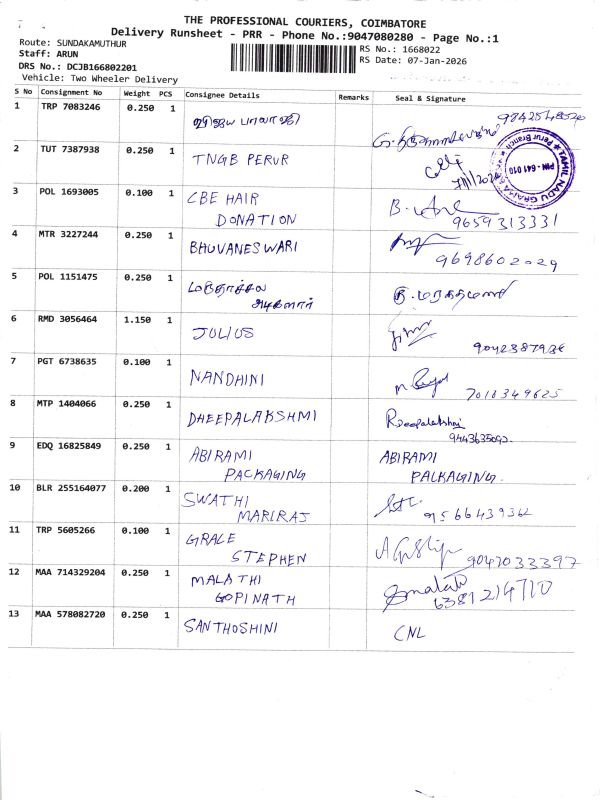 THE PROFESSIONAL COURIERS, COIMBATORE
Delivery Runsheet - PRR - Phone No.:9047080280 - Page No.:1
Route: SUNDAKAMUTHUR
Staff: ARUN
DRS No.: DCJB166802201
Vehicle: Two Wheeler Delivery
RS No.: 1668022
RS Date: 07-Jan-2026
S No Consignment No Weight PCS Consignee Details Remarks Seal & Signature
1 TRP 7083246 0.250 1 விஜய பாலாஜி
2 TUT 7387938 0.250 1 TNGB PERUR
TAMIL NADU GRAMA
Perur Branch
PIN - 641 010
3 POL 1693005 0.100 1 CBE HAIR
DONATION
9659313331
4 MTR 3227244 0.250 1 BHUVANESWARI
9698602029
5 POL 1151475 0.250 1
அடிகளார் த. மரகதமணி
6 RMD 3056464 1.150 1 JULIUS
7 PGT 6738635 0.100 1 NANDHINI
7018349625
8 MTP 1404066 0.250 1 DHEEPALAKSHMI R.Deepalakshmi
9 EDQ 16825849 0.250 1 ABIRAMI ABIRAMI
PACKAGING PALKAGING.
10 BLR 255164077 0.200 1 SWATHI
MARIRAJ 9566439362
11 TRP 5605266 0.100 1 GRALE
STEPHEN 9047033397
12 MAA 714329204 0.250 1 MALATHI
GOPINATH 6381214710
13 MAA 578082720 0.250 1 SANTHOSHINI CNL